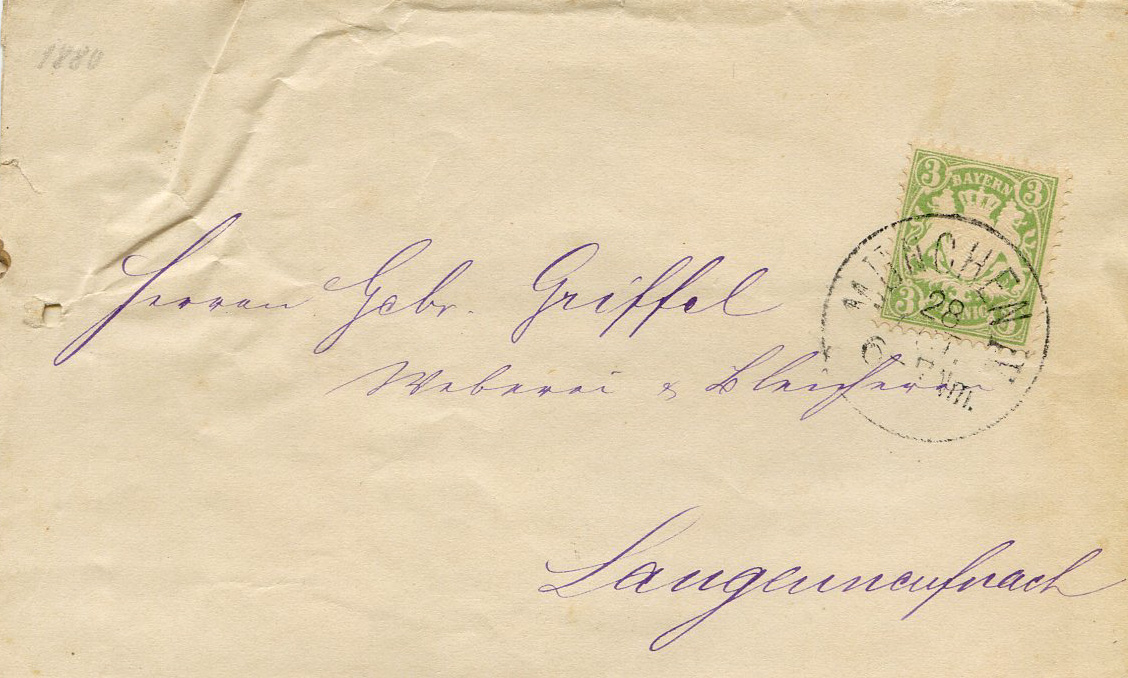 1880
3 BAYERN 3
3 3
MÜNCHEN II
28
7 Vm.
Herren Gebr. Griffel
Weberei & Bleicherei
Langenneufnach